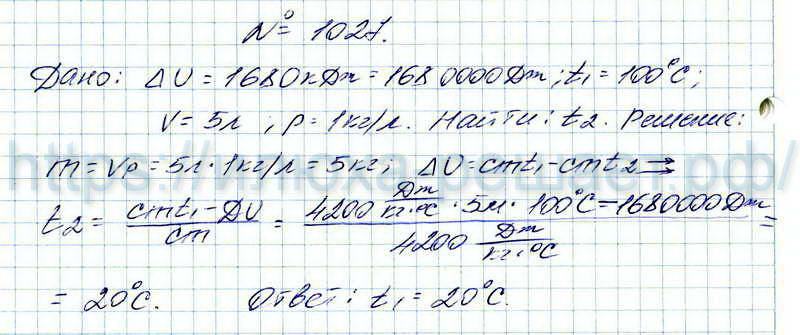 № 1027.
Дано: ΔU = 1680кДж = 1680000Дж; t₁ = 100°C;
V = 5л ; ρ = 1кг/л. Найти: t₂. Решение:
m = Vρ = 5л · 1кг/л = 5кг; ΔU = cmt₁ - cmt₂ ⇒
t₂ = (cmt₁ - DU)/(cm) = (4200 Дж/кг·°C · 5м · 100°C = 1680000Дж)/(4200 Дж/кг·°C) =
= 20°C. Ответ: t₁ = 20°C.